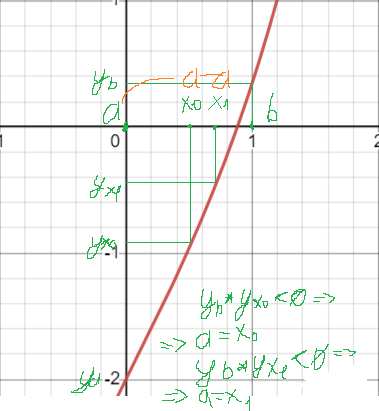 1
y_b
a a
a
x_0 x_1
b
0
1
2
1
y_x1
y_x0
-1
y_b * y_x0 < 0 =>
=> a = x_0
y_b * y_x1 < 0 =>
y_a -2
=> a = x_1